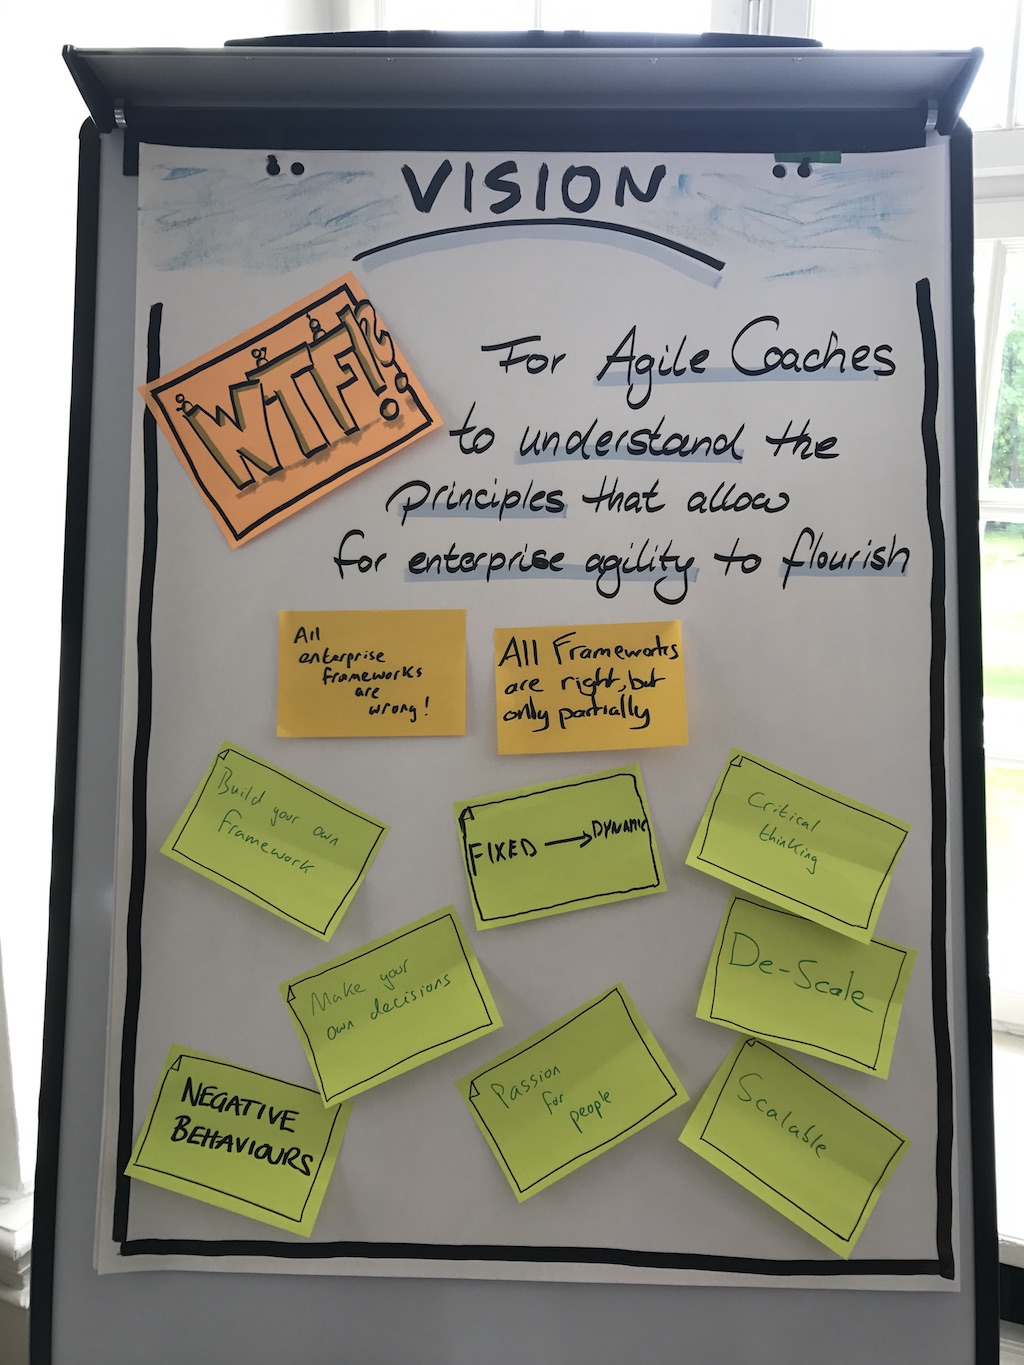 VISION
WTF!?
For Agile Coaches
to understand the
principles that allow
for enterprise agility to flourish
All
enterprise
frameworks
are
wrong!
All Frameworks
are right, but
only partially
Build your own
framework
FIXED → DYNAMIC
Critical
thinking
Make your
own decisions
De-Scale
NEGATIVE
BEHAVIOURS
Passion
for
people
Scalable